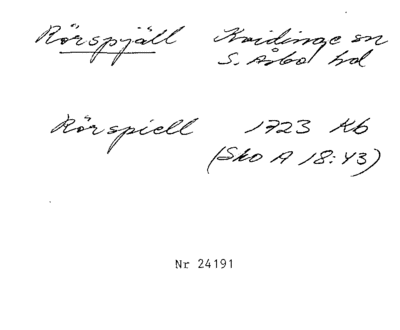 Rörspjäll Kvidinge sn
S. Åsbo hd
Rörspiell 1723 Kb
(Sko A 18:43)
Nr 24191